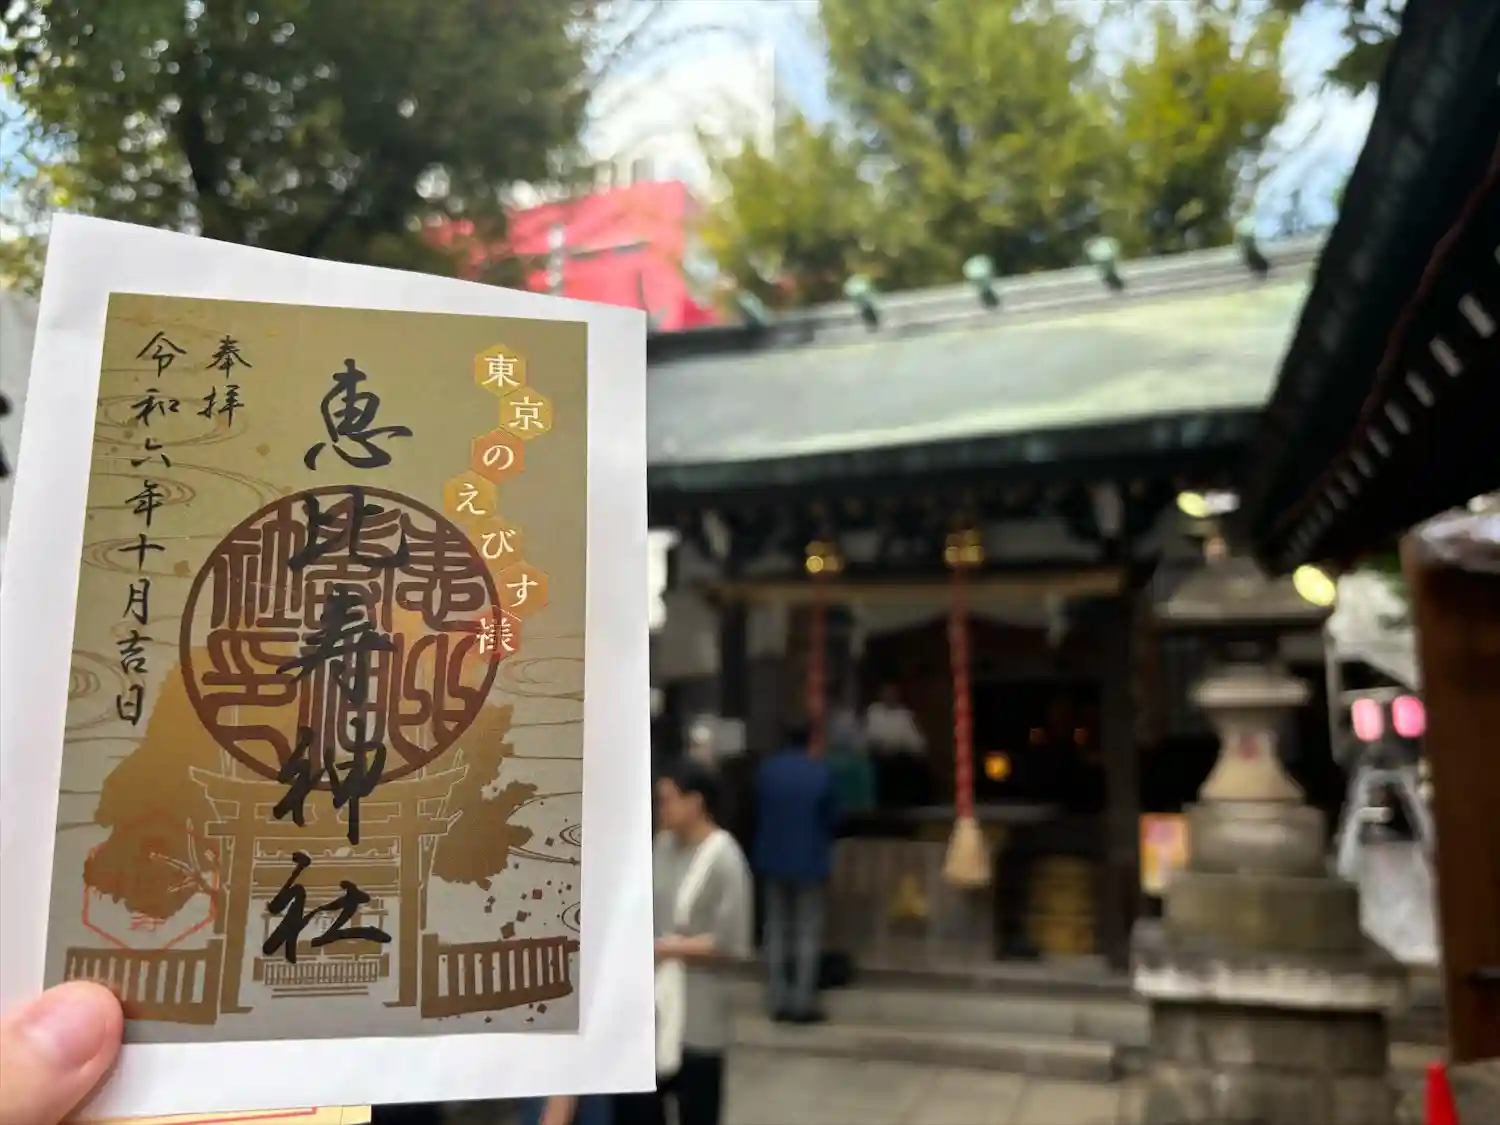 東京のえびす様
恵比寿神社
奉拝
令和六年十月吉日